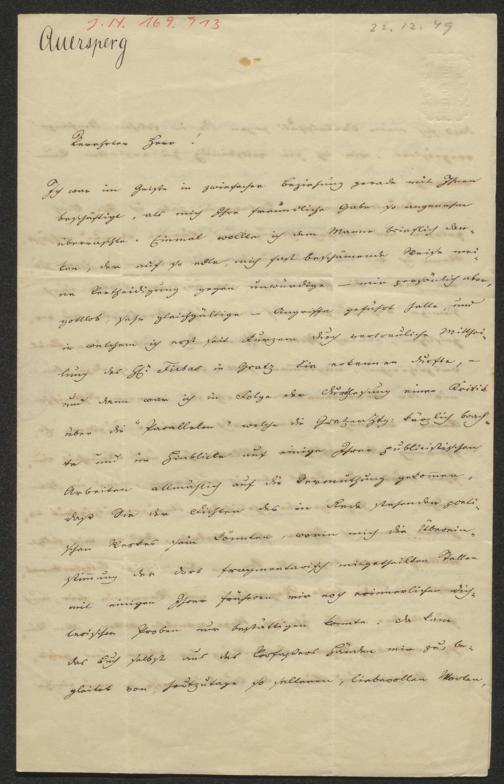 J. N. 169.913
22.12.49
Auersperg
Verehrter Herr!
Ich war im Geiste in zwiefacher Beziehung gerade mit Ihnen
beschäftigt, als mich Ihre freundliche Gabe so angenehm
überraschte. Einmal wollte ich dem Manne brieflich dan-
ken, der auf so edle, mich fast beschämende Weise mei-
ne Vertheidigung gegen unwürdige – mir persönlich aber,
gottlob sehr gleichgültige – Angriffe geführt hatte, und
in welchem ich erst seit Kurzem durch vertrauliche Mitthei-
lung des in Gratz Sie erkennen durfte, –
und dann war ich in Folge der Durchlesung einer Kritik
über die "Parallelen" welche die kürzlich brach-
te und im Hinblicke auf einige Ihrer publicistischen
Arbeiten allmählich auf die Vermuthung gekommen,
daß Sie der Dichter des in Rede stehenden poeti-
schen Werkes sein könnten, worin mich die Überein-
stimmung der dort fragmentarisch mitgetheilten Stellen
mit einigen Ihrer früheren mir noch erinnerlichen dich-
terischen Proben nur bestättigen konnte. Da kam
das Buch selbst aus des Verfassers Händen mir zu, be-
gleitet von heutzutage so seltenen, liebevollen Worten,